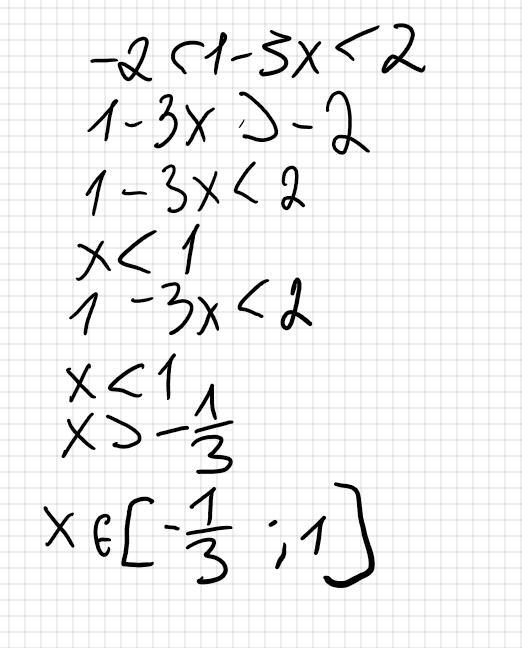 -2 < 1 - 3x < 2
1 - 3x > -2
1 - 3x < 2
x < 1
1 - 3x < 2
x < 1
x > -1/3
x ∈ [-1/3 ; 1]